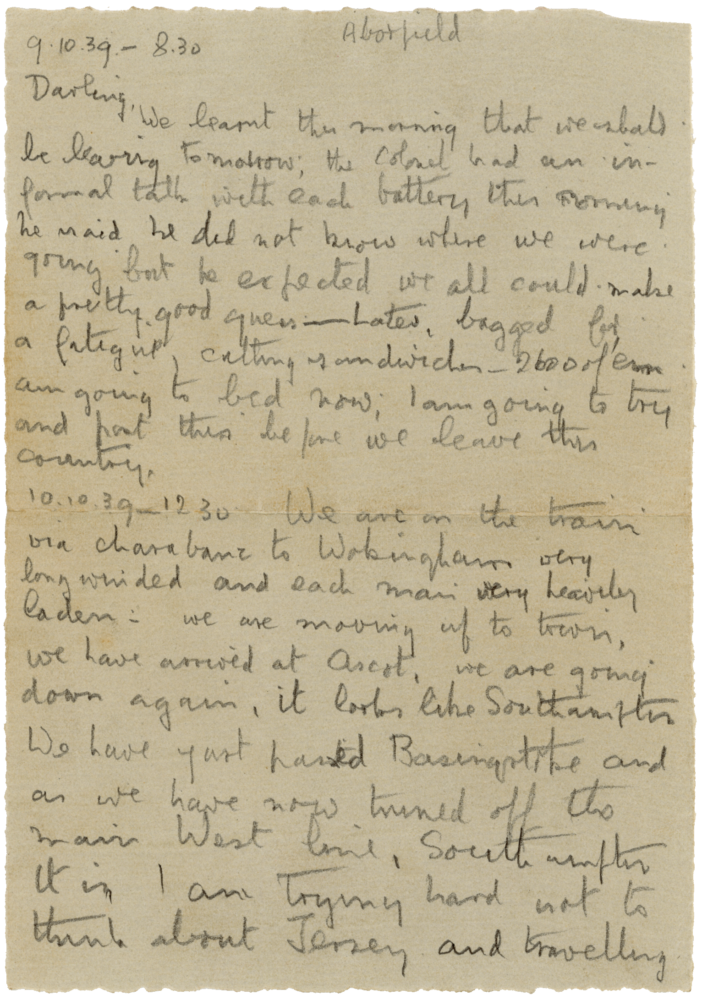 Aborfield
9.10.39.- 8.30
Darling,
We learnt this morning that we shall
be leaving tomorrow; the Colonel had an in-
formal talk with each battery this morning
he said he did not know where we were
going but he expected we all could make
a pretty good guess — Later, bagged for
a fatigue, cutting sandwiches - 2600 of em
am going to bed now; I am going to try
and post this before we leave this
country.
10.10.39 - 12 30 We are on the train
via charabanc to Wokingham very
long winded and each man very heavily
laden: we are moving up to town,
we have arrived at Ascot, we are going
down again, it looks like Southampton
We have just passed Basingstoke and
as we have now turned off the
main West line, Southampton
it is I am trying hard not to
think about Jersey and travelling